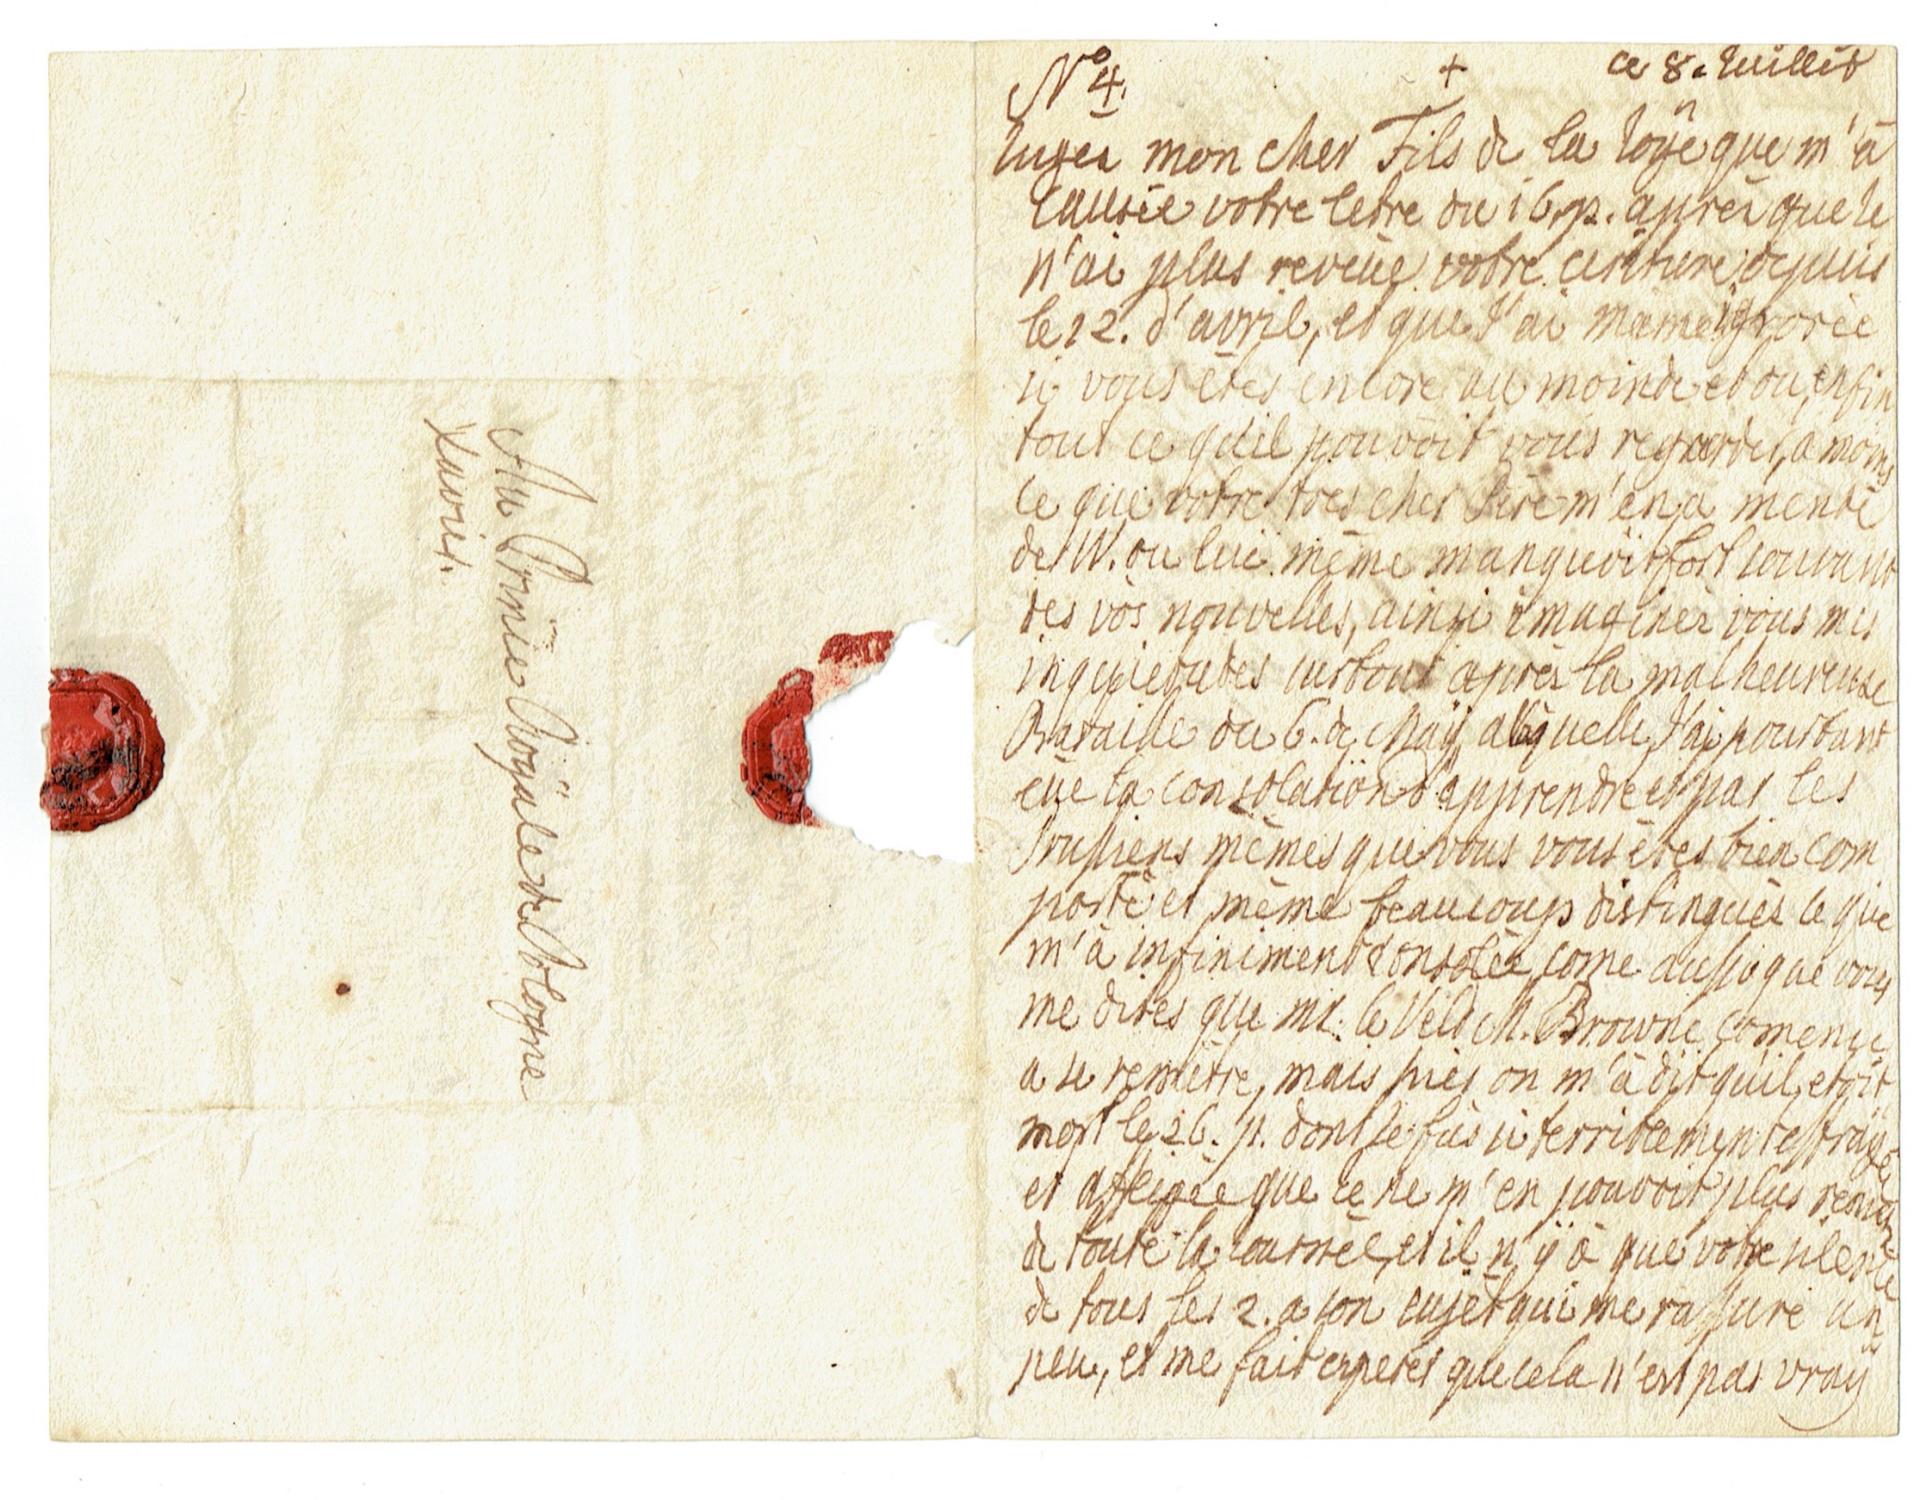 Au Prince Royale de Pologne
Xavier.
No 4.
+
ce 8. Juillet
Jugez mon cher Fils de la Joÿe que m'à
causée votre letre du 16. p. aprèz que Je
n'ai plus reveüe votre ecriture depuis
le 22. d'avril, et que J'ai meme ignorée
si vous etes encore au monde et ou, enfin
tout ce qu'il pouvoit vous regarder, a moins
ce que votre tres cher Pere m'en a mendé
de W. ou lui même manquoit fort souvant
des vos nouvelles, ainsi imaginéz vous mes
inquietudes surtout aprèz la malheureuse
Bataille du 6. de Maÿ, a laquelle J'ai pourtant
eüe la consolation d'apprendre et par les
Prussiens mêmes que vous vous étes bien com
porté et même beaucoup distinguéz ce que
m'à infiniment consolée, come aussi que vous
me dites que Mr. le Veld M. Browne comence
a se remètre, mais hier on m'à dit qu'il etoit
mort le 26. p. dont Je fus si terriblement effraÿée
et affligée que Je ne m'en pouvoit plus remetre
de toute la Journèe, et il n'ÿ à que votre silence
de tous les 2. a son sujet qui me rassure un
peu, et me fait esperer que cela n'est pas vraÿ